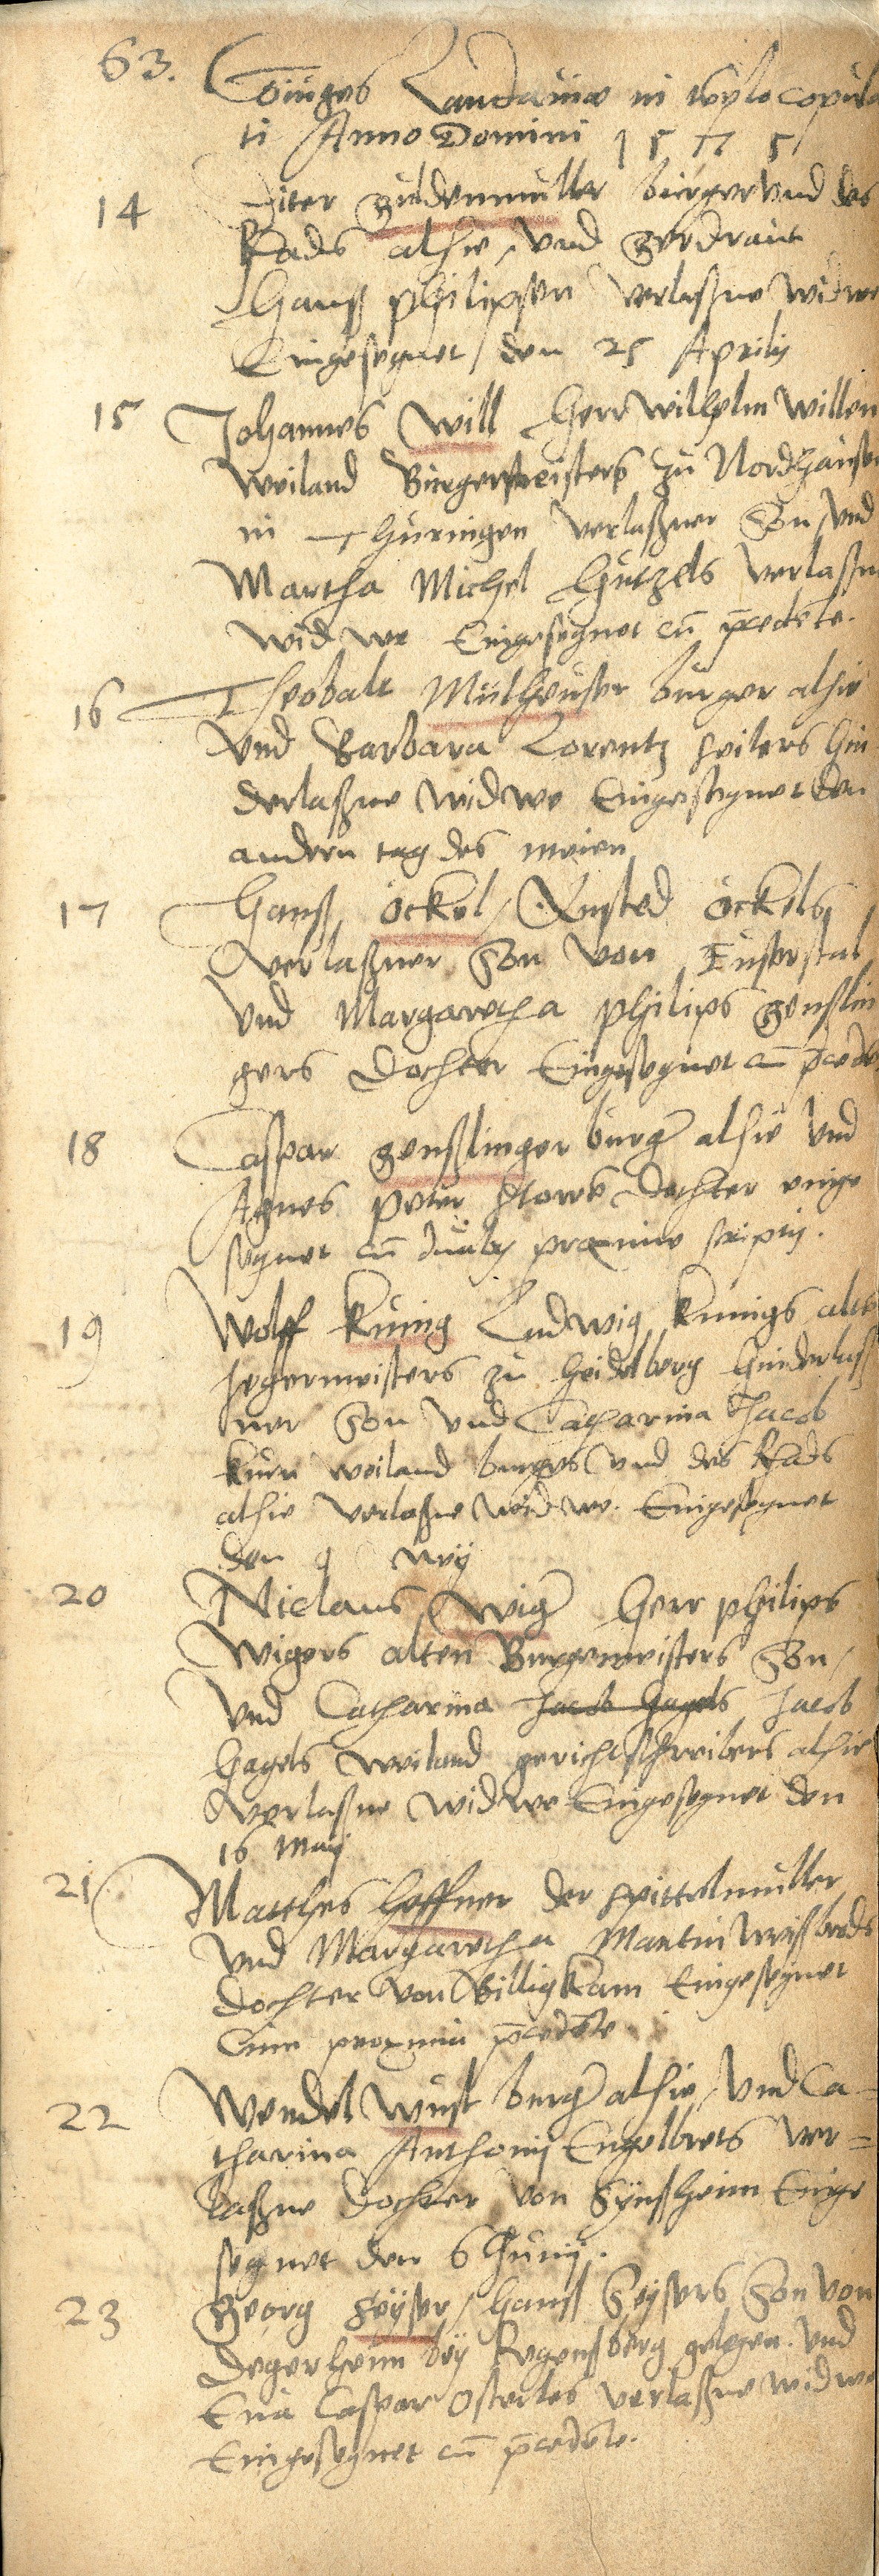 63. Coniuges Landauiæ in templo copula
ti Anno Domini 1575
14 Diter guldenmuller burger und des
Rads alhie, und gerdraut
Hanß philipsen verlaßne widwe
Eingesegnet den 25 Aprilis
15 Johannes Will Herr Wilhelm Willen
weiland Burgermeisters zu Nordhausen
in Thuringen verlaßner Son, und
Martha Michel Hutzels verlaßne
widwe Eingesegnet cū p̄cedēte.
16 Theobalt Mülheuser burger alhie
und Barbara Lorentz seilers hin
derlaßne widwe Eingesegnet den
andern tag des meien
17 Hanß öckel, öckels
verlaßner Son von Eußerstal
und Margaretha philips genslin
gers dochter Eingesegnet cū p̄cedē
18 Caspar genßlinger burger alhie und
Agnes peter dochter einge
segnet cū duabus proxime scriptis.
19 Wolff küning Ludwig kunigs alts
Jegermeisters zu Heidelberg hinderlaß
ner Son und Catharina Jacob
kurn weiland burgers und des Rads
alhie verlaßne widwe. Eingesegnet
den 9 Meij
20 Niclaus Wiger Herr philips
wigers alten Burgermeisters Son,
und Catharina Jacob Hagels Jacob
Hagels weiland gerichtschreibers alhie
verlaßne widwe Eingesegnet den
16 Maij
21 Matthes Heffner der spittelmüller
und Margaretha Martin Weißbrods
dochter von Billigkam Eingesegnet
Cum proxima p̄cedēte
22 Wendel Wust burger alhie, und Ca-
tharina Anthonij Engelbrets ver=
laßne dochter von Synßheim Einge
segnet den 6 Junij.
23 Georg Seyser, Hanß Seysers Son von
Degerheim bey Regensberg gelegen. und
Eua Caspar Osterles verlaßne widwe
Eingesegnet cū p̄cedēte.